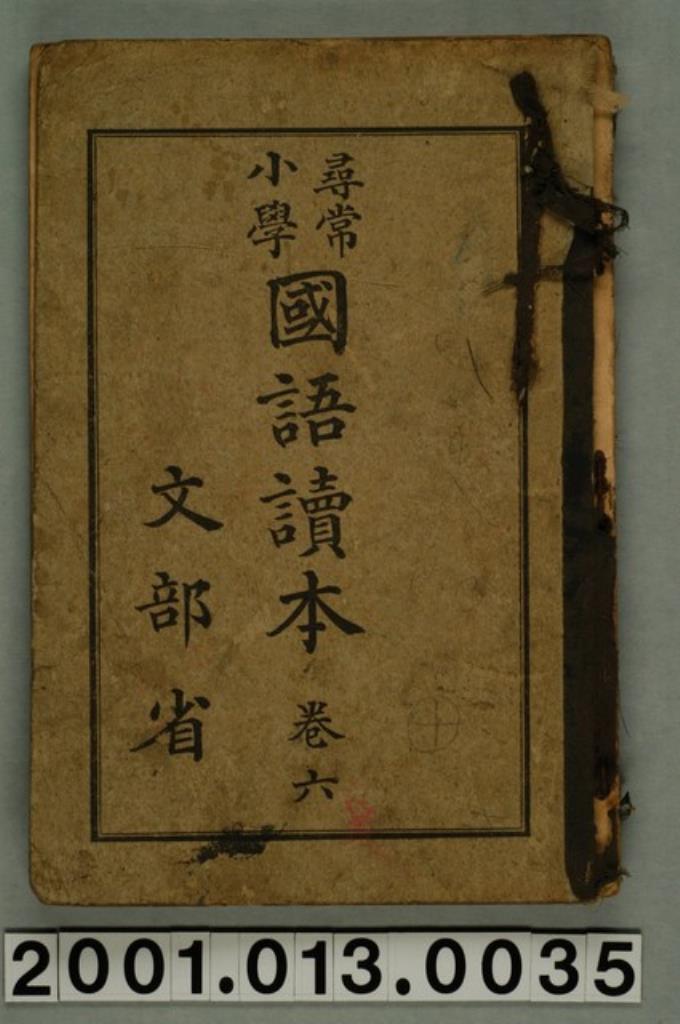 尋常
小學
國語讀本
卷六
文部省
2001.013.0035